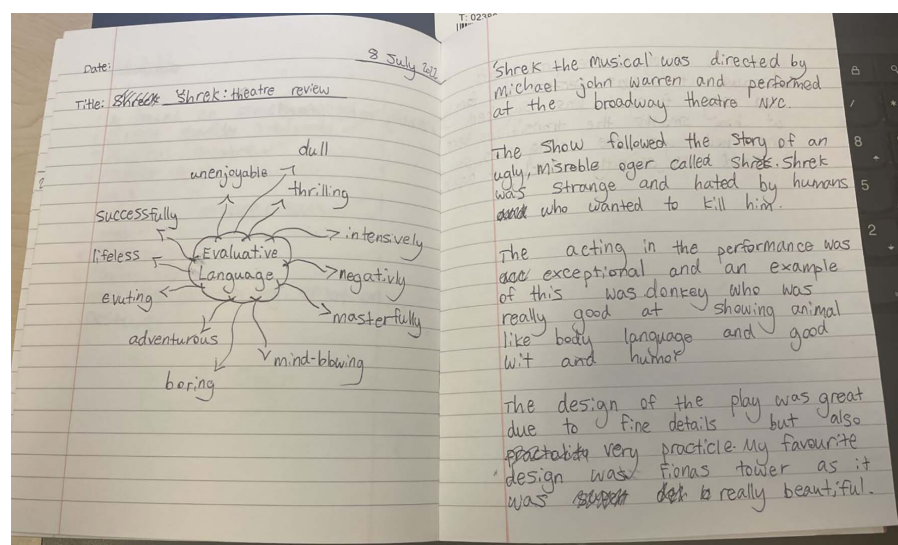 Date:
8 July 2022
Title: Shrek: theatre review
dull
unenjoyable
thrilling
successfully
intensively
lifeless
Evaluative
Language
negativly
exuting
masterfully
adventurous
mind-blowing
boring
'Shrek the musical' was directed by
michael john warren and performed
at the broadway theatre NYC.
The show followed the story of an
ugly, misreble oger called Shrek. Shrek
was strange and hated by humans
who wanted to kill him.
The acting in the performance was
exceptional and an example
of this was donkey who was
really good at showing animal
like body language and good
wit and humor
The design of the play was great
due to fine details but also
very practicle. My favourite
design was fionas tower as it
was really beautiful.
T: 0238
8
5
2